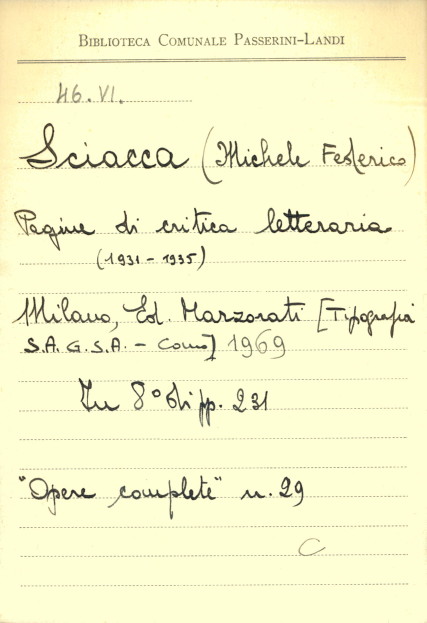 BIBLIOTECA COMUNALE PASSERINI-LANDI
46.VI.
Sciacca (Michele Federico)
Pagine di critica letteraria
(1931-1935)
Milano, Ed. Marzorati [Tipografia
S.A.G.S.A. - Como] 1969
In 8° di pp. 231
"Opere complete" n. 29
C